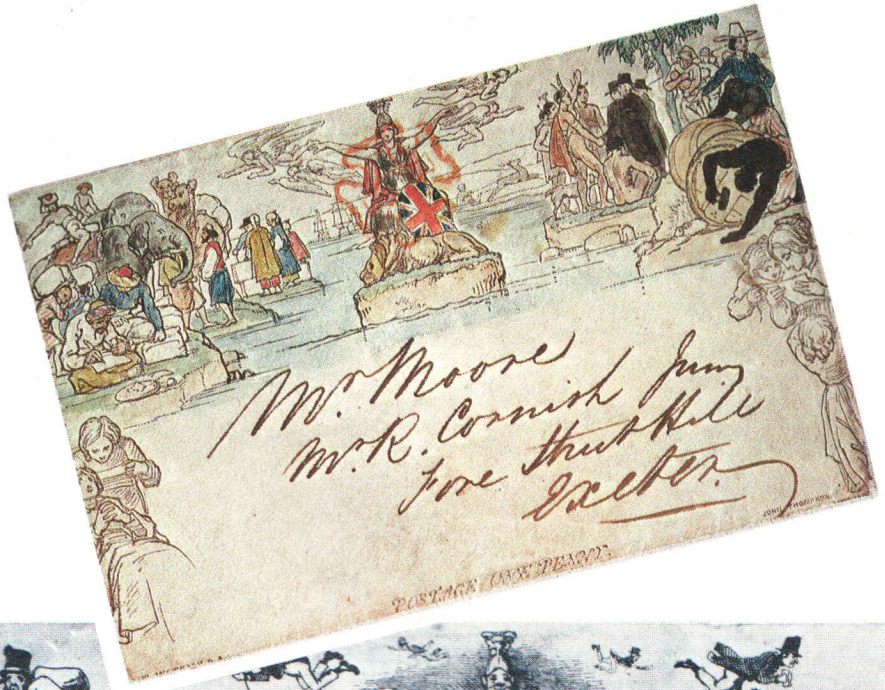 Mr. Moore
Mr. R. Cornish Junr
Fore Street Hill
Exeter.
JOHN THOMPSON
POSTAGE ONE PENNY.